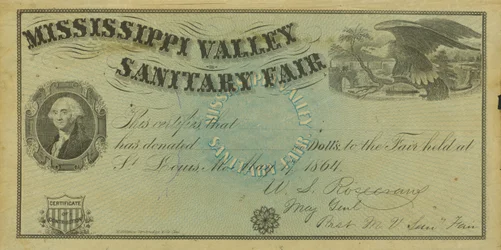 MISSISSIPPI VALLEY
SANITARY FAIR.
This certifies that
has donated Dolls to the Fair held at
St Louis Mo May 17 1864
MISSISSIPPI VALLEY
SANITARY FAIR
W. S. Rosecrans
Maj Genl
Prest M V San Fair
CERTIFICATE